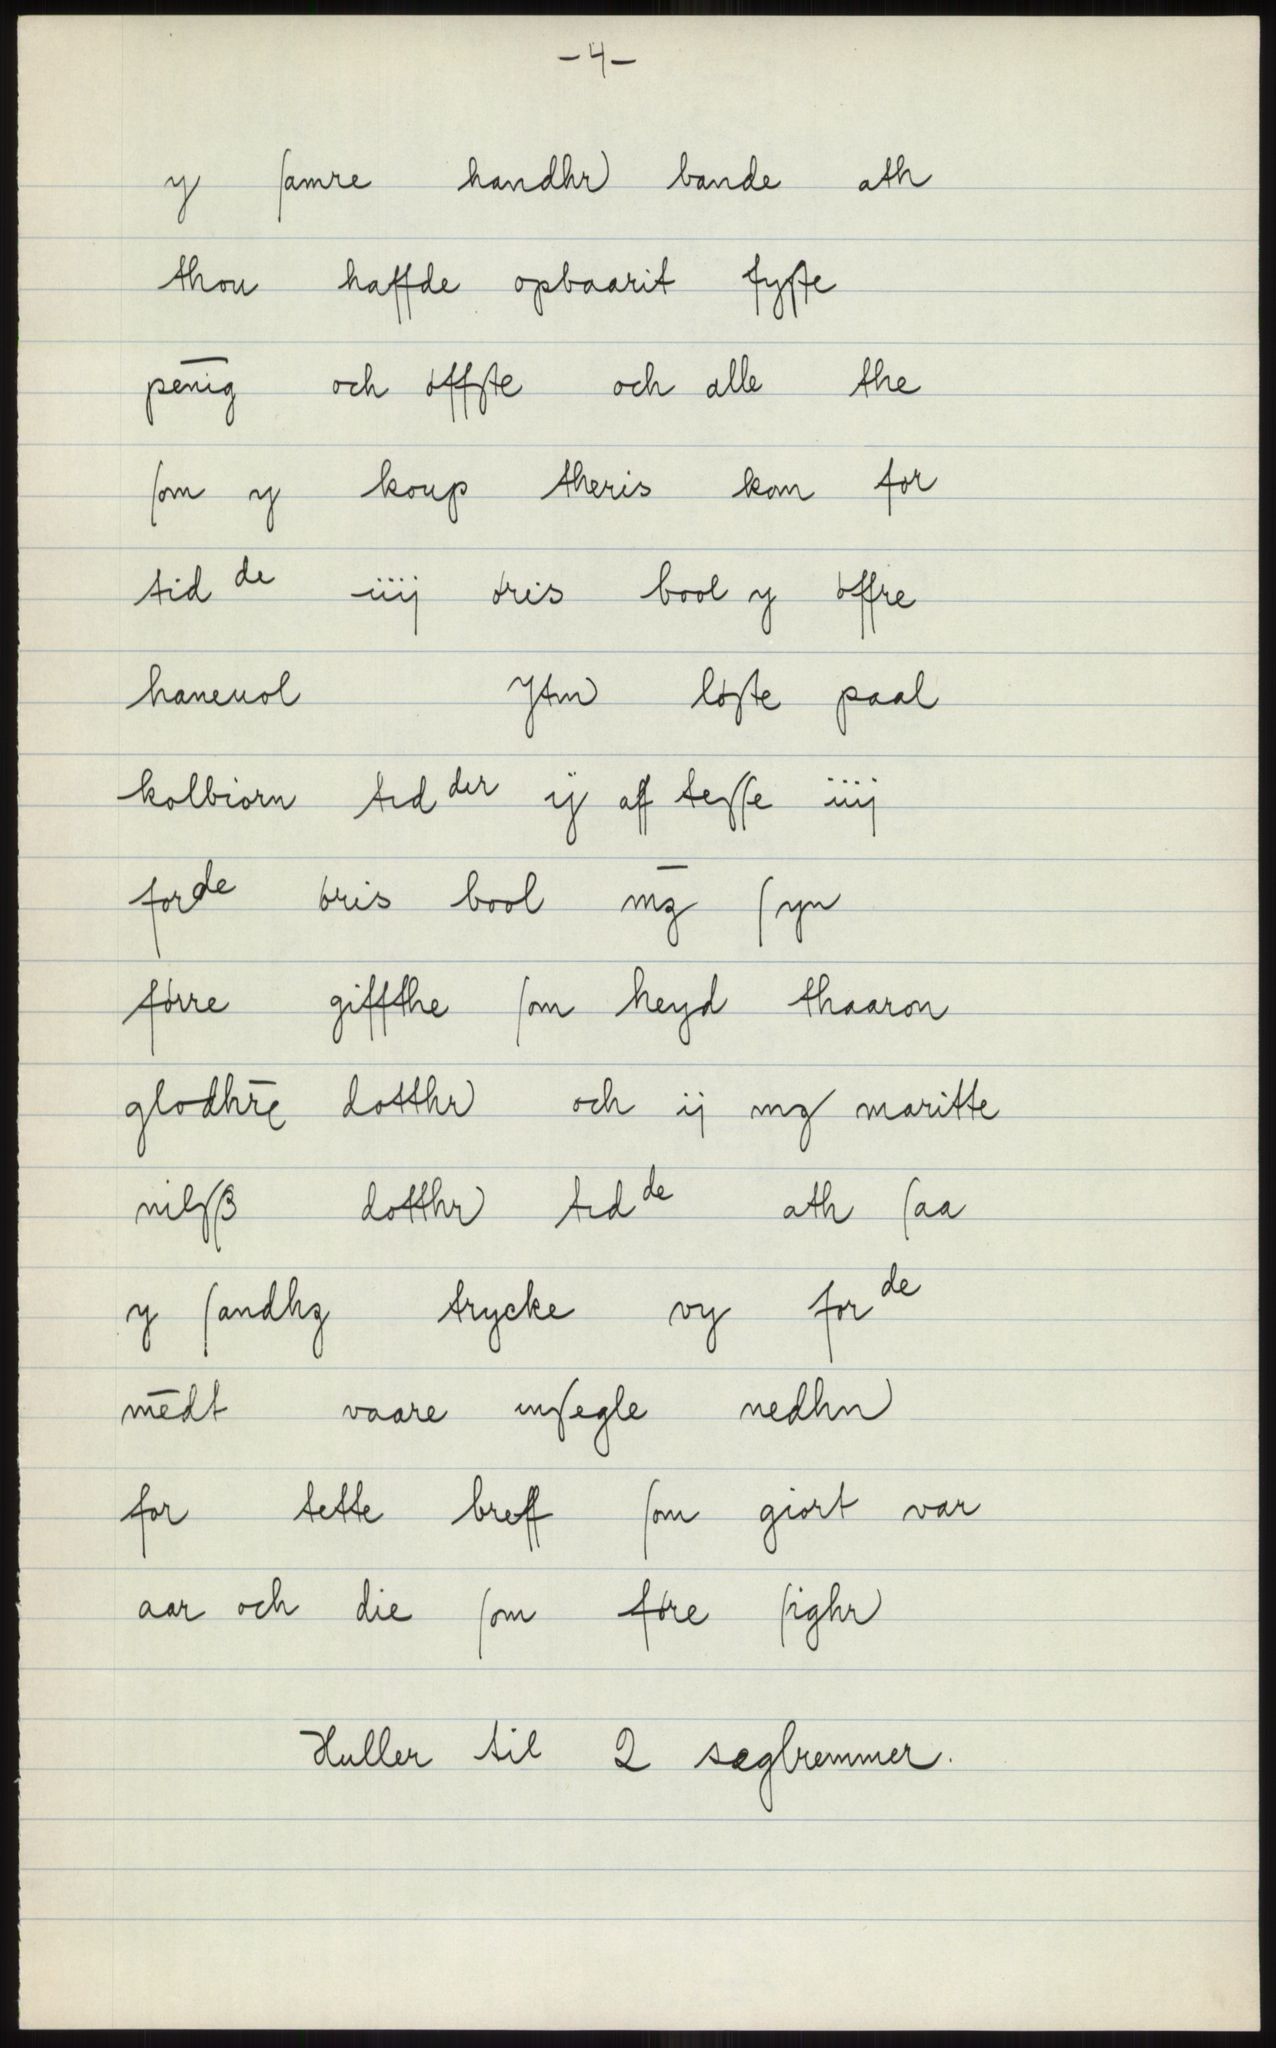 -4-
y ſamre handhr bande ath
thou haffde opbaarit fyſte
pēnig och øffſte och alle the
ſom y koup theris kom for
tid de iiij øris bool y øffre
haneuol Ytm løſte paal
kolbiorn tid der ij aff teſſe iiij
forde øris bool m̄ꝫ ſyn
førre giffthe ſom heyd thaaron
glodhr̄e dotthr och ij mꝫ maritte
nilſß dotthr tidde ath ſaa
y ſandhꝫ trycke vy forde
mēdt vaare inſegle nedhn
for tette breff ſom giort var
aar och die ſom føre ſighr
Huller til 2 seglremmer.